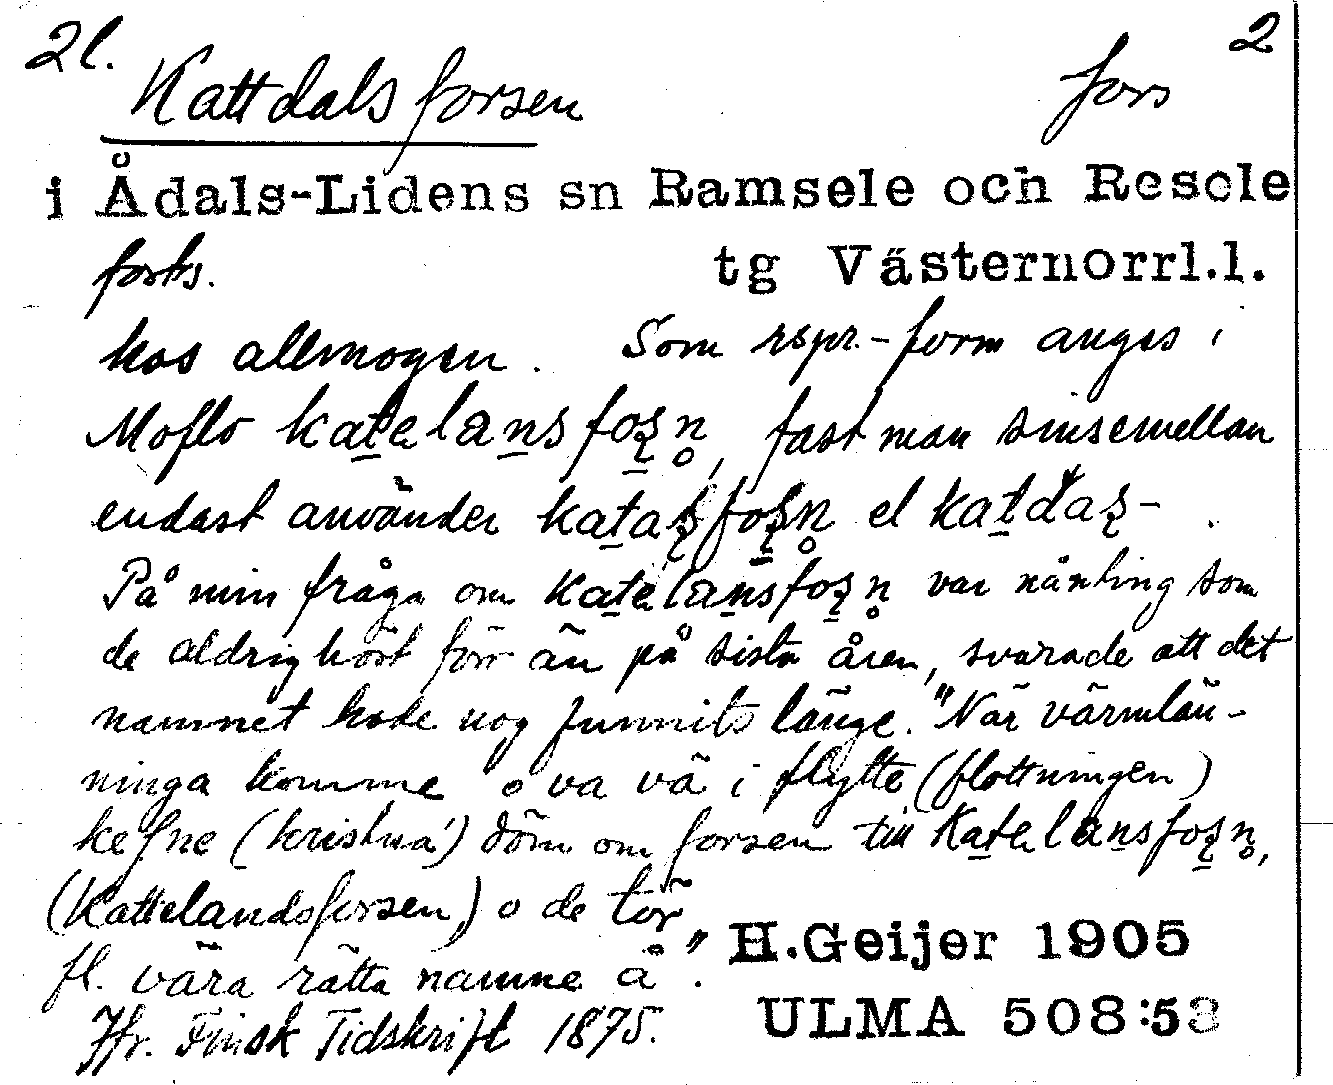 2l. 2
Kattdalsforsen fors
i Ådals-Lidens sn Ramsele och Resele
forts. tg Västernorrl.l.
hos allmogen. Som rspr.-form anges i
Moflo katelansfoʂn̥, fast man sinsemellan
endast använder kataʂfoʂn̥ el katdaʂ-.
På min fråga om katelansfoʂn̥ var nånting som
de aldrig hört förr än på sista åren, svarade att det
namnet hade nog funnits länge. "När värmlän-
ninga komme o va vä i flytte (flottningen)
(kristna) döm om forsen till katelansfoʂn̥,
(Kattelandsforsen) o de tör
fl. vära rätta namne å".
H.Geijer 1905
Jfr. Finsk Tidskrift 1875.
ULMA 508:53